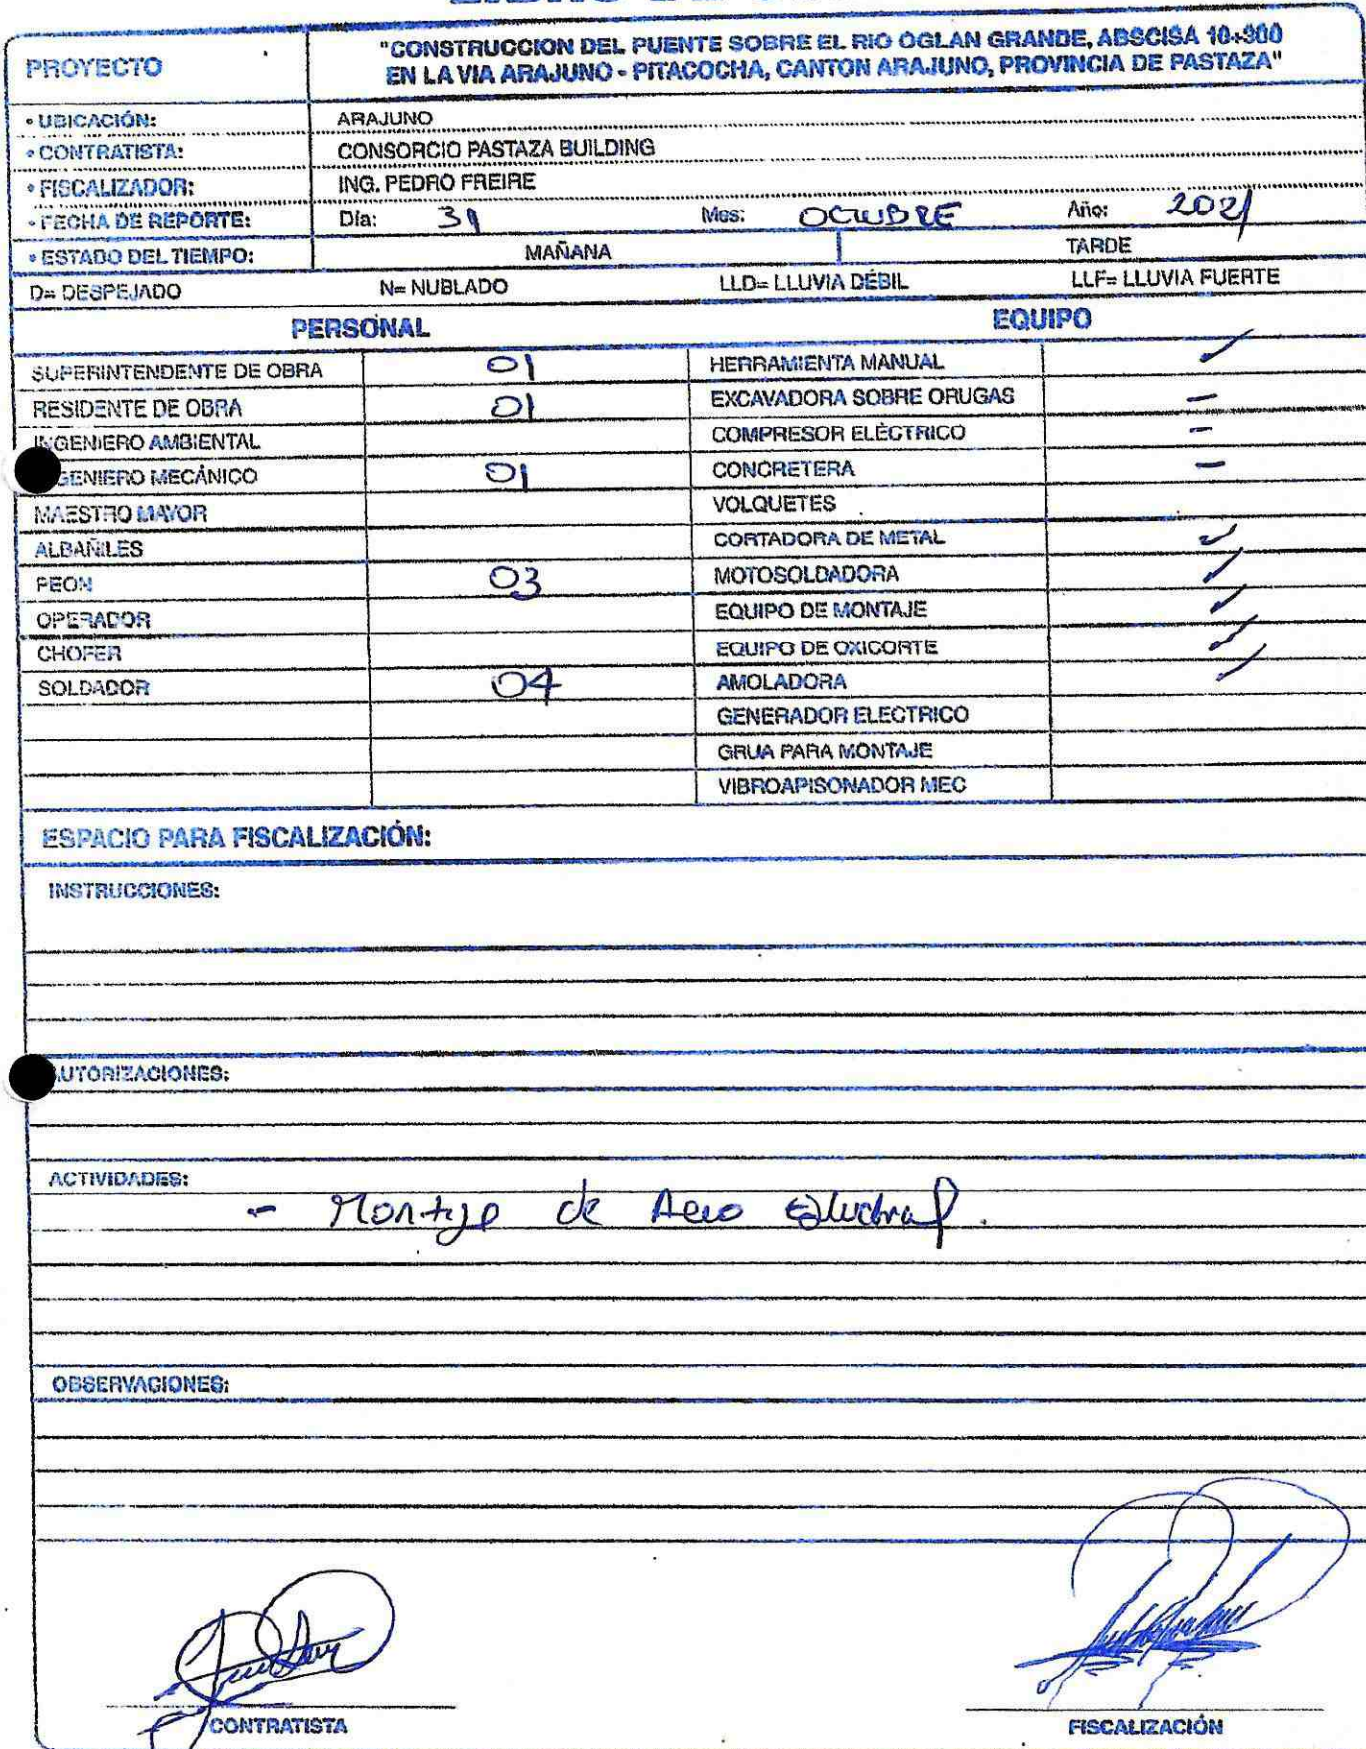 PROYECTO
"CONSTRUCCION DEL PUENTE SOBRE EL RIO OGLAN GRANDE, ABSCISA 10+300
EN LA VIA ARAJUNO - PITACOCHA, CANTON ARAJUNO, PROVINCIA DE PASTAZA"
• UBICACIÓN: ARAJUNO
• CONTRATISTA: CONSORCIO PASTAZA BUILDING
• FISCALIZADOR: ING. PEDRO FREIRE
• FECHA DE REPORTE: Día: 31 Mes: OCTUBRE Año: 2021
• ESTADO DEL TIEMPO: MAÑANA TARDE
D= DESPEJADO N= NUBLADO LLD= LLUVIA DÉBIL LLF= LLUVIA FUERTE
PERSONAL EQUIPO
SUPERINTENDENTE DE OBRA 01 HERRAMIENTA MANUAL ✓
RESIDENTE DE OBRA 01 EXCAVADORA SOBRE ORUGAS –
INGENIERO AMBIENTAL COMPRESOR ELÉCTRICO –
GENIERO MECÁNICO 01 CONCRETERA –
MAESTRO MAYOR VOLQUETES
ALBAÑILES CORTADORA DE METAL ✓
PEON 03 MOTOSOLDADORA ✓
OPERADOR EQUIPO DE MONTAJE ✓
CHOFER EQUIPO DE OXICORTE ✓
SOLDADOR 04 AMOLADORA ✓
GENERADOR ELECTRICO
GRUA PARA MONTAJE
VIBROAPISONADOR MEC
ESPACIO PARA FISCALIZACIÓN:
INSTRUCCIONES:
UTORIZACIONES:
ACTIVIDADES:
- Montaje de Acero Estructural.
OBSERVACIONES:
CONTRATISTA FISCALIZACIÓN